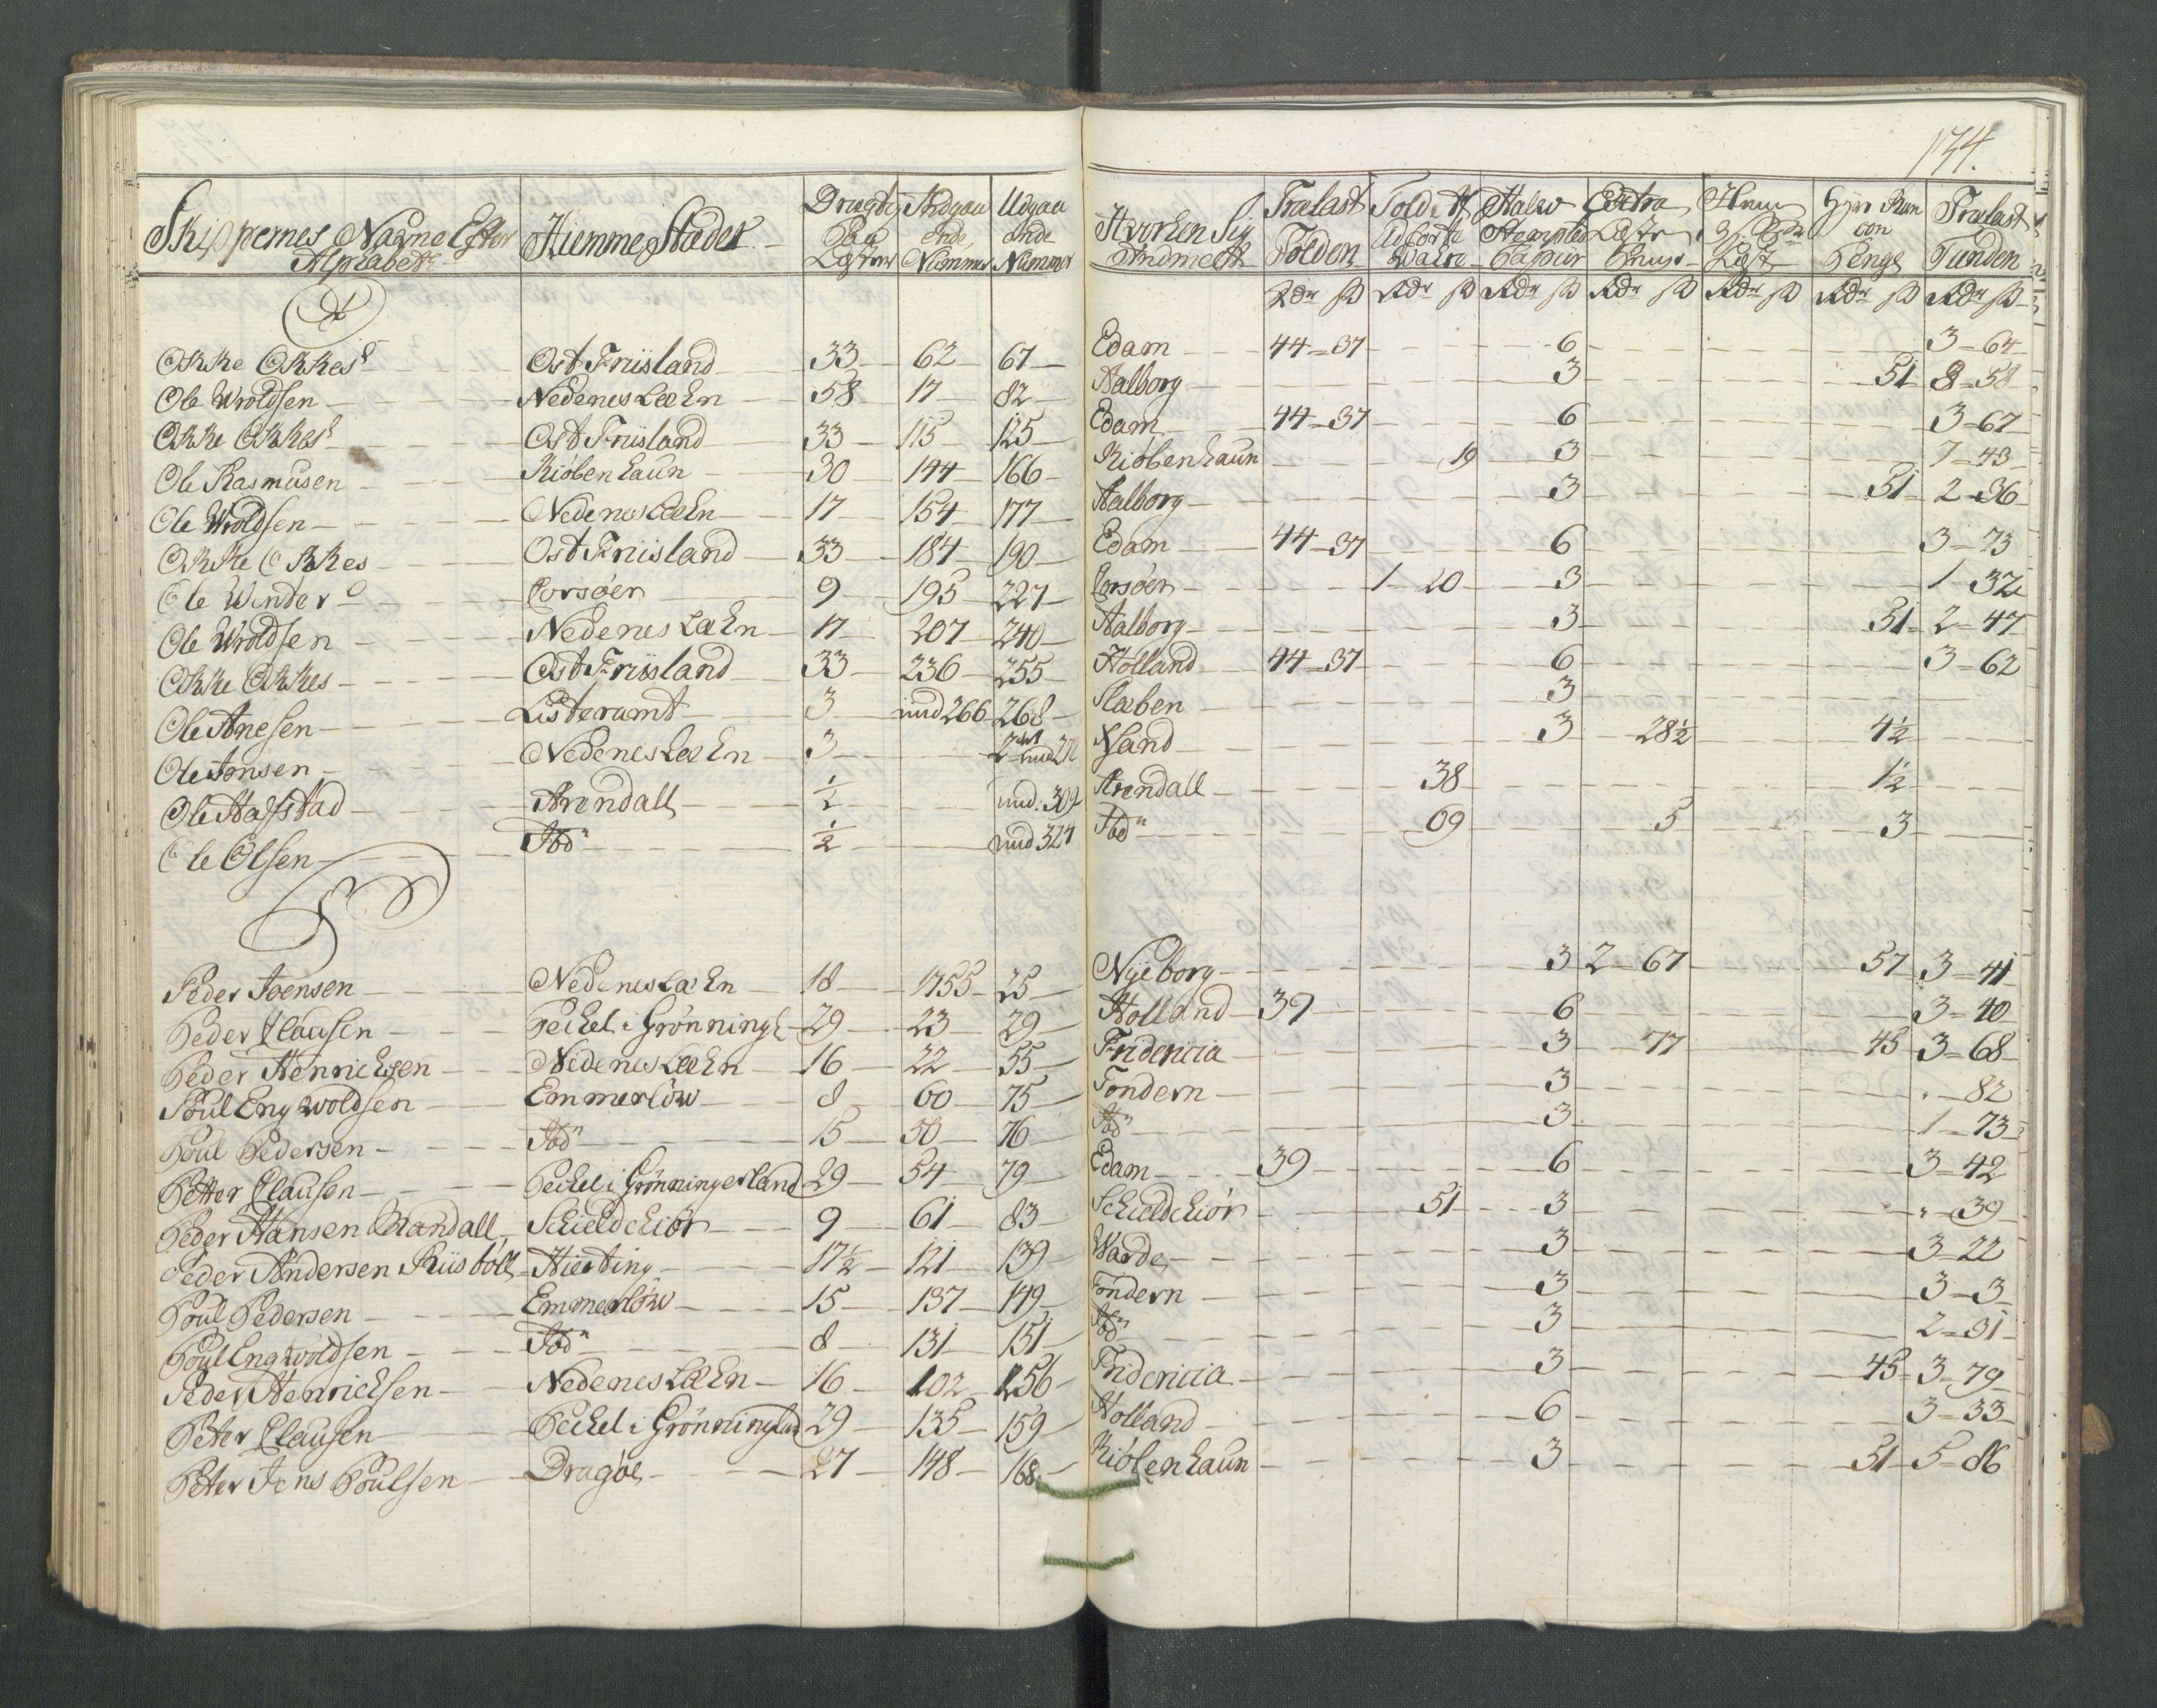 174.
Skippernes Navne Efter Alphabett
Hiemme Stæder
Drægtig Paa Læster
Indgaaende Nummer
Udgaaende Nummer
Hvorhen Sig
Trælast Tolden
Told af Udførte Wahre
Halv Stemplet Papiir
Extra
Trælast Tienden
Rdr ß Rdr ß Rdr ß Rdr ß Rdr ß Rdr ß Rdr ß
O
Okke Okkes Ost Friisland 33 62 67 Edam 44-37 6 3-64
Ole Wroldsen Nedenes Læhn 58 17 82 Aalborg 3 51 8-58
Okke Okkes Ost Friisland 33 115 125 Edam 44-37 6 3-67
Ole Rasmusen Kiöbenhaun 30 144 166 Kiöbenhaun 19 3 7-43
Ole Wroldsen Nedenes Læhn 17 154 177 Aalborg 3 51 2-36
Okke Okkes Ost Friisland 33 184 190 Edam 44-37 6 3-73
Ole Winder Corsöer 9 195 227 Corsöer 1-20 3 1-32
Ole Wroldsen Nedenes Læhn 17 207 240 Aalborg 3 51 2-47
Okke Okkes Ost Friisland 33 236 255 Holland 44-37 6 3-62
Ole Anesen Listeramt 3 nud 266 268 3
Ole Jonsen Nedenes Læhn 3 3 28½ 4½
Ole Hafstad Arendall ½ nud. 309 Arendall 38 1½
Ole Olsen Ibdn ½ nud 324 Ibdn 69 5 3
P
Peder Joensen Nedenes Læhn 18 1755 25 Nyeborg 3 2-67 57 3-41
Peder Clausen Pechel i Grønningl 29 23 29 Holland 39 6 3-40
Peder Henrichsen Nedenes Læhn 16 22 55 Fridericia 3 77 45 3-68
Poul Engwoldsen Emmerlöw 8 60 75 Tondern 3 82
Poul Pedersen Ibdn 15 50 76 Ibdn 3 1-73
Petter Clausen Pechel i Grønningerland 29 54 79 Edam 39 6 3-42
Peder Hansen Randall Schieldchiör 9 61 83 Schieldchiör 51 3 39
Peder Andersen Riisböll Hierting 17½ 121 139 Warde 3 3-22
Poul Pedersen Emmerlöw 15 137 149 Töndern 3 3-3
Poul Engwoldsen Ibdn 8 131 151 Ibdn 3 2-31
Peder Henrichsen Nedenes Læhn 16 102 156 Fridericia 3 45 3-79
Peter Clausen Pechel i Grønninglan 29 135 159 Holland 6 3-33
Peter Jens Poulsen Dragöe 27 148 168 Kiöbenhaun 3 51 5-86